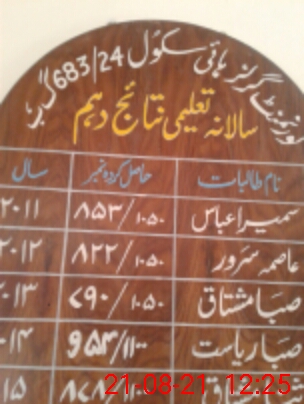 گورنمنٹ گرلز ہائی سکول 683/24 گ ب
سالانہ تعلیمی نتائج دہم
نام طالبات حاصل کردہ نمبر سال
سمیرا عباس ۸۵۳/۱۰۵۰ ۲۰۱۱
عاصمہ سرور ۸۲۲/۱۰۵۰ ۲۰۱۲
صبا مشتاق ۷۹۰/۱۰۵۰ ۰۱۳
صبا ریاست ۹۵۳/۱۱۰۰ ۰۱۴
۱۵
21-08-21 12:25